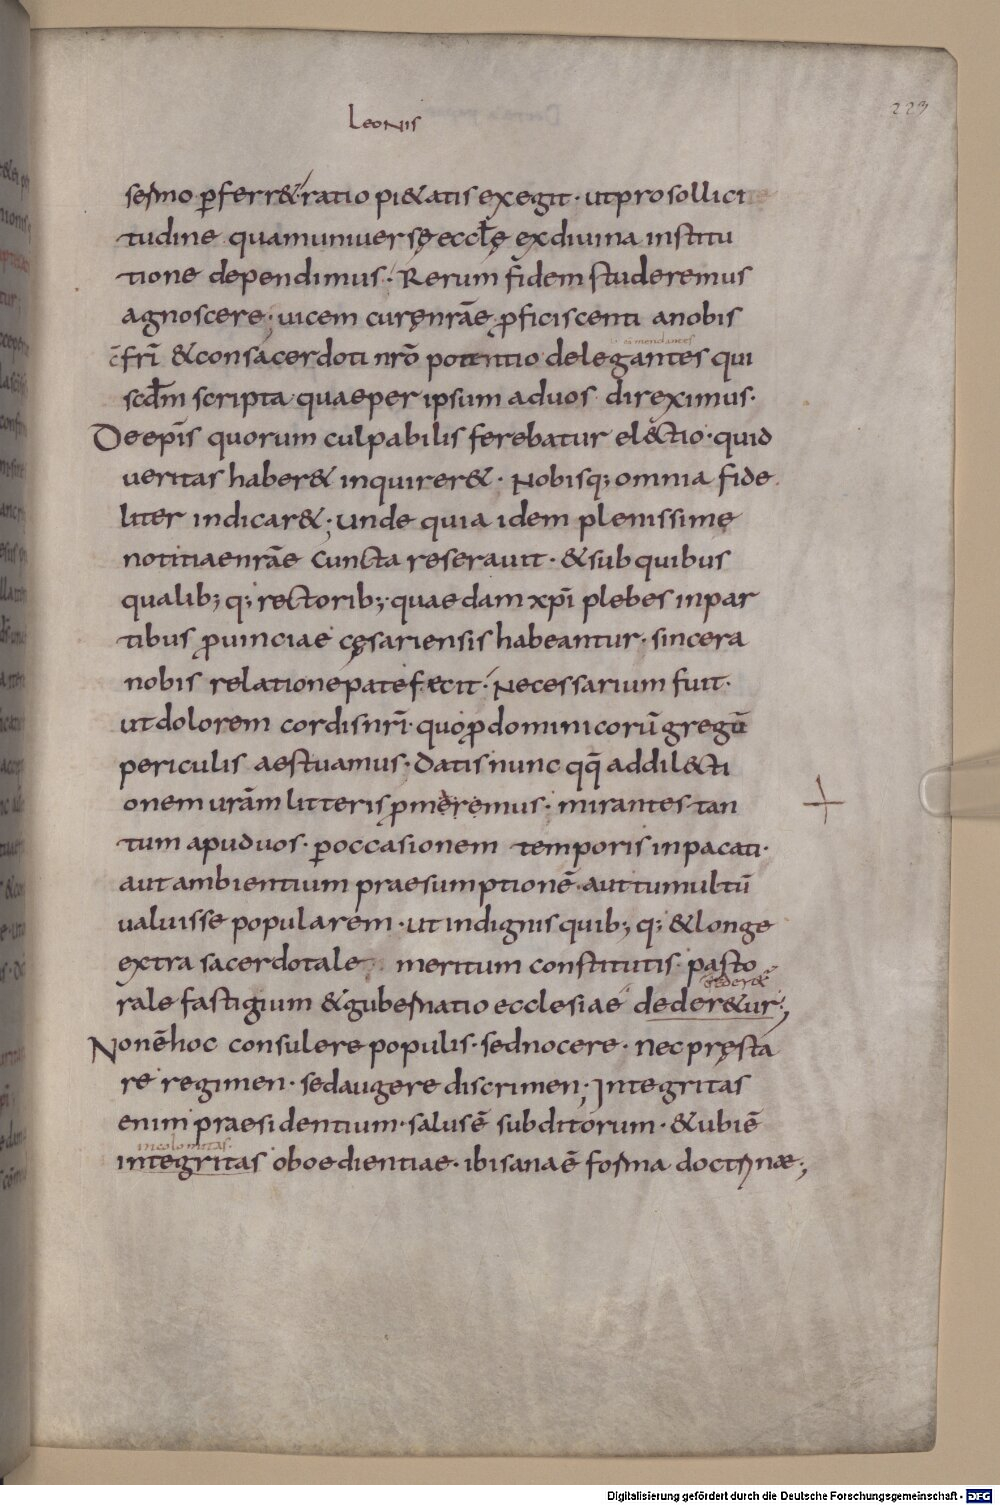 Leonis
223
sermo p̄ferr&ratio pi&atis exegit· utprosollici
tudine quamuniuersę eccłę exdiuina institu
tione dependimus· Rerum fidem studeremus
agnoscere· uicem curęnrāe p̄ficiscenti anobis
c̄frī &consacerdoti nrō potentio delegantes qui
scdm̄ scripta quaeper ipsum aduos direximus·
Deepīs quorum culpabilis ferebatur el&ctio· quid
ueritas haber& inquirer&· Nobisq; omnia fide
liter indicar&; unde quia idem plenissime
notitiaenrāe cuncta reserauit· &sub quibus
qualib; q; rectorib;· quaedam xp̄i plebes inpar
tibus p̄uinciae cęsariensis habeantur· sincera
nobis relationepatefecit· Necessarium fuit·
utdolorem cordisnrī· quop̄dominicorū gregū
periculis aestuamus· datisnunc qq̄ addil&cti
onem urām litteris p̄meremus· mirantes tan
tum apuduos· p̄occasionem temporis inpacati·
aut ambientium praesumptionē· auttumultū
ualuisse popularem· ut indignis quib; q; &longe
extra sacerdotale meritum constitutis· pasto
rale fastigium &gubernatio ecclesiae deder&ur;
Nonēhoc consulere populis· sednocere· nec pręsta
re regimen· sedaugere discrimen; Integritas
enim praesidentium· salusē subditorum· &ubiē
incolomitas·
integritas oboedientiae· ibisanaē forma doctrinae;
Digitalisierung gefördert durch die Deutsche Forschungsgemeinschaft - DFG